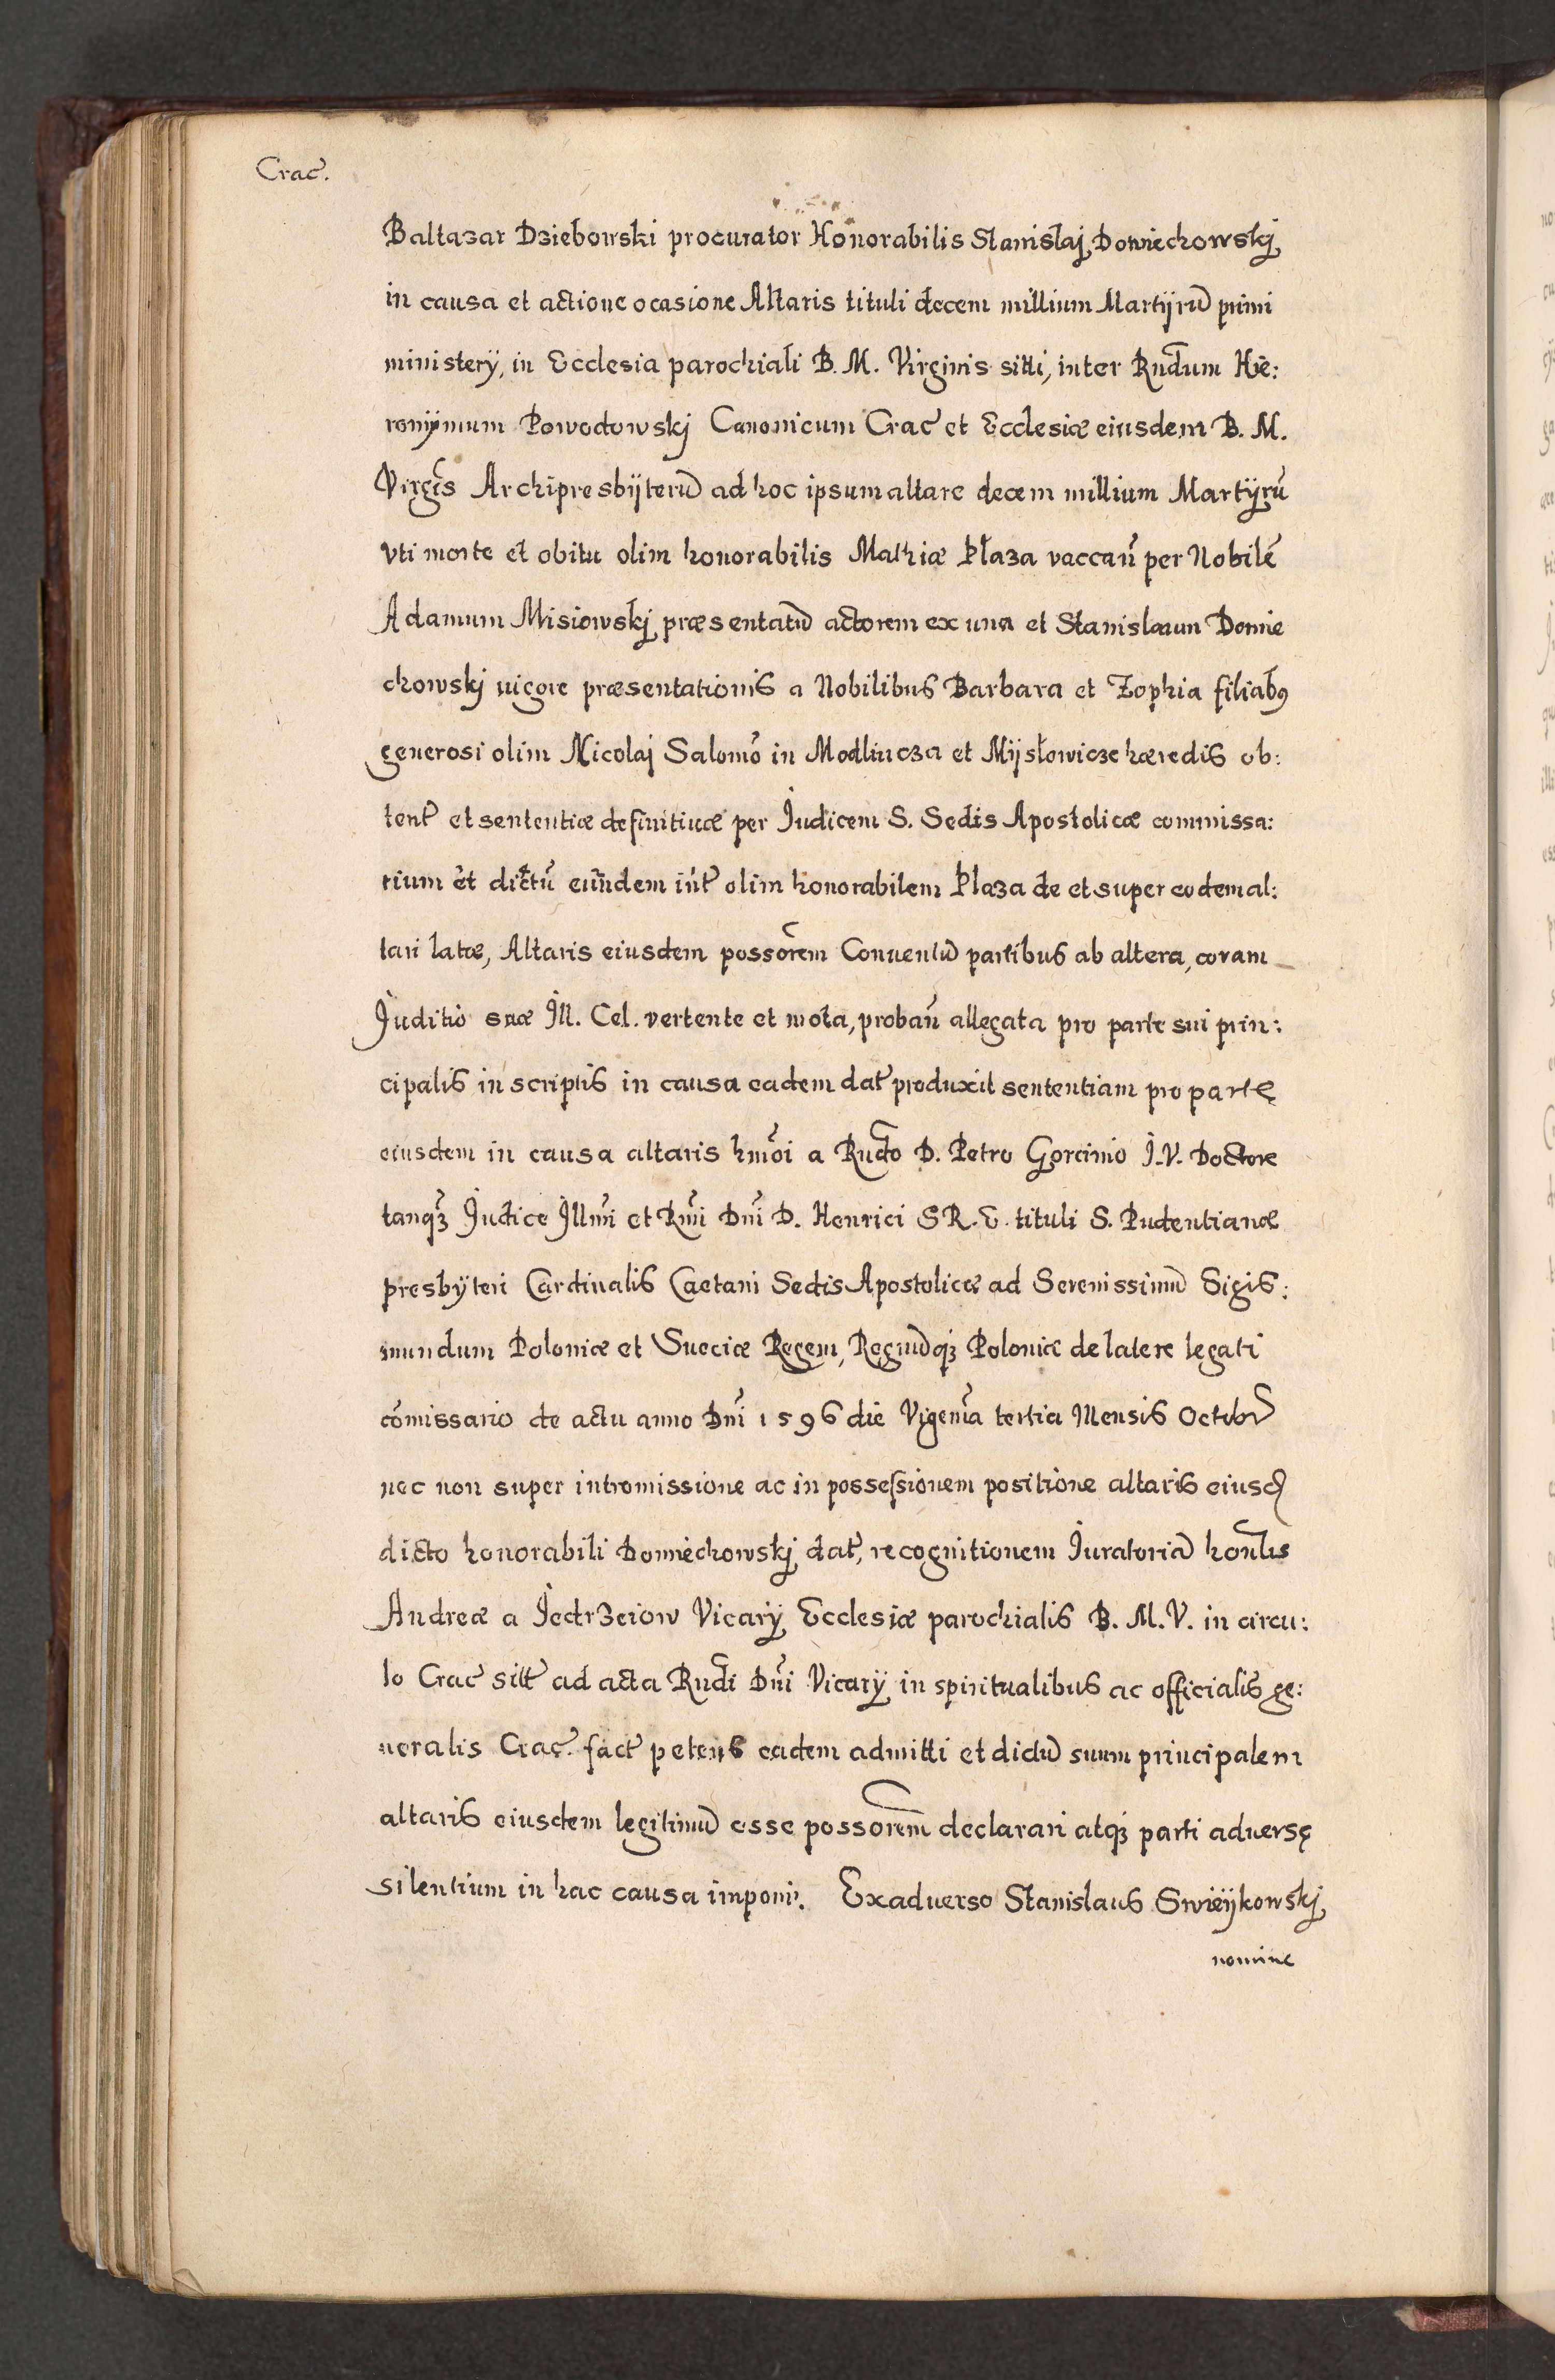 Crac̃.
Baltazar Dziebowski procurator Honorabilis Stanislaj Dowiechowskj
in causa et actione ocasione Altaris tituli decem millium Martÿrũ primi
ministerÿ, in Ecclesia parochiali B. M. Virginis sitti, inter Rndum Hie:
ronÿmum Powodowskj Canonicum Crac̃ et Ecclesiæ eiusdem B. M.
Virgĩs Archipresbÿterũ ad hoc ipsum altare decem millium Martÿrũ
vti morte et obitu olim honorabilis Mathiæ Płaza vaccañ per Nobilẽ
Adamum Misiowskj præsentatũ actorem ex una et Stanislaum Donie
chowskj uigore præsentationis a Nobilibus Barbara et Zophia filiabꝯ
generosi olim Nicolaj Salomõ in Modlnicza et Mÿslowicze hæredis ob:
tent̃ et sententiæ definitiuæ per Judicem S. Sedis Apostolicæ commissa:
rium et dictũ eundem int̃ olim honorabilem Plaza de et super eodem al:
tari latæ, Altaris eiusdem possorẽm Conuentũ partibus ab altera, coram
Juditio suæ Jll. Cel. vertente et mota, probañ allegata pro parte sui prin:
cipalis in scriptis in causa eadem dat̃ produxit sententiam pro parte
eiusdem in causa altaris hmõi a Rndo D. Petro Gorcinio J.V. Doctore
tanqꝫ Judice Jllm̃i et Rm̃i Dñi D. Henrici S R. E. tituli S. Pudentianæ
presbÿteri Cardinalis Caetani Sedis Apostolicæ ad Serenissimũ Sigis:
mundum Poloniæ et Sueciæ Regem, Regnũqꝫ Poloniæ de latere legati
cõmissario de actu anno Dñi 1596 die Vigenĩa tertia Mensis Octobr̃
nec non super intromissione ac in possessionem positione altaris eiusd̃
dicto honorabili Doniechowskj dat̃, recognitionem Juratoriã honlis
Andreæ a Jedrzeiow Vicarÿ Ecclesiæ parochialis B. M. V. in circu:
lo Crac̃ sitt̃ ad acta Rndi Dñi Vicarÿ in spiritualibus ac officialis ge:
neralis Crac̃. fact̃ petens eadem admitti et dictũ suum principalem
altaris eiusdem legitimũ esse possorẽm declarari atqꝫ parti aduersę
silentium in hac causa imponi. Exaduerso Stanislaus Swieÿkowskj
nomine